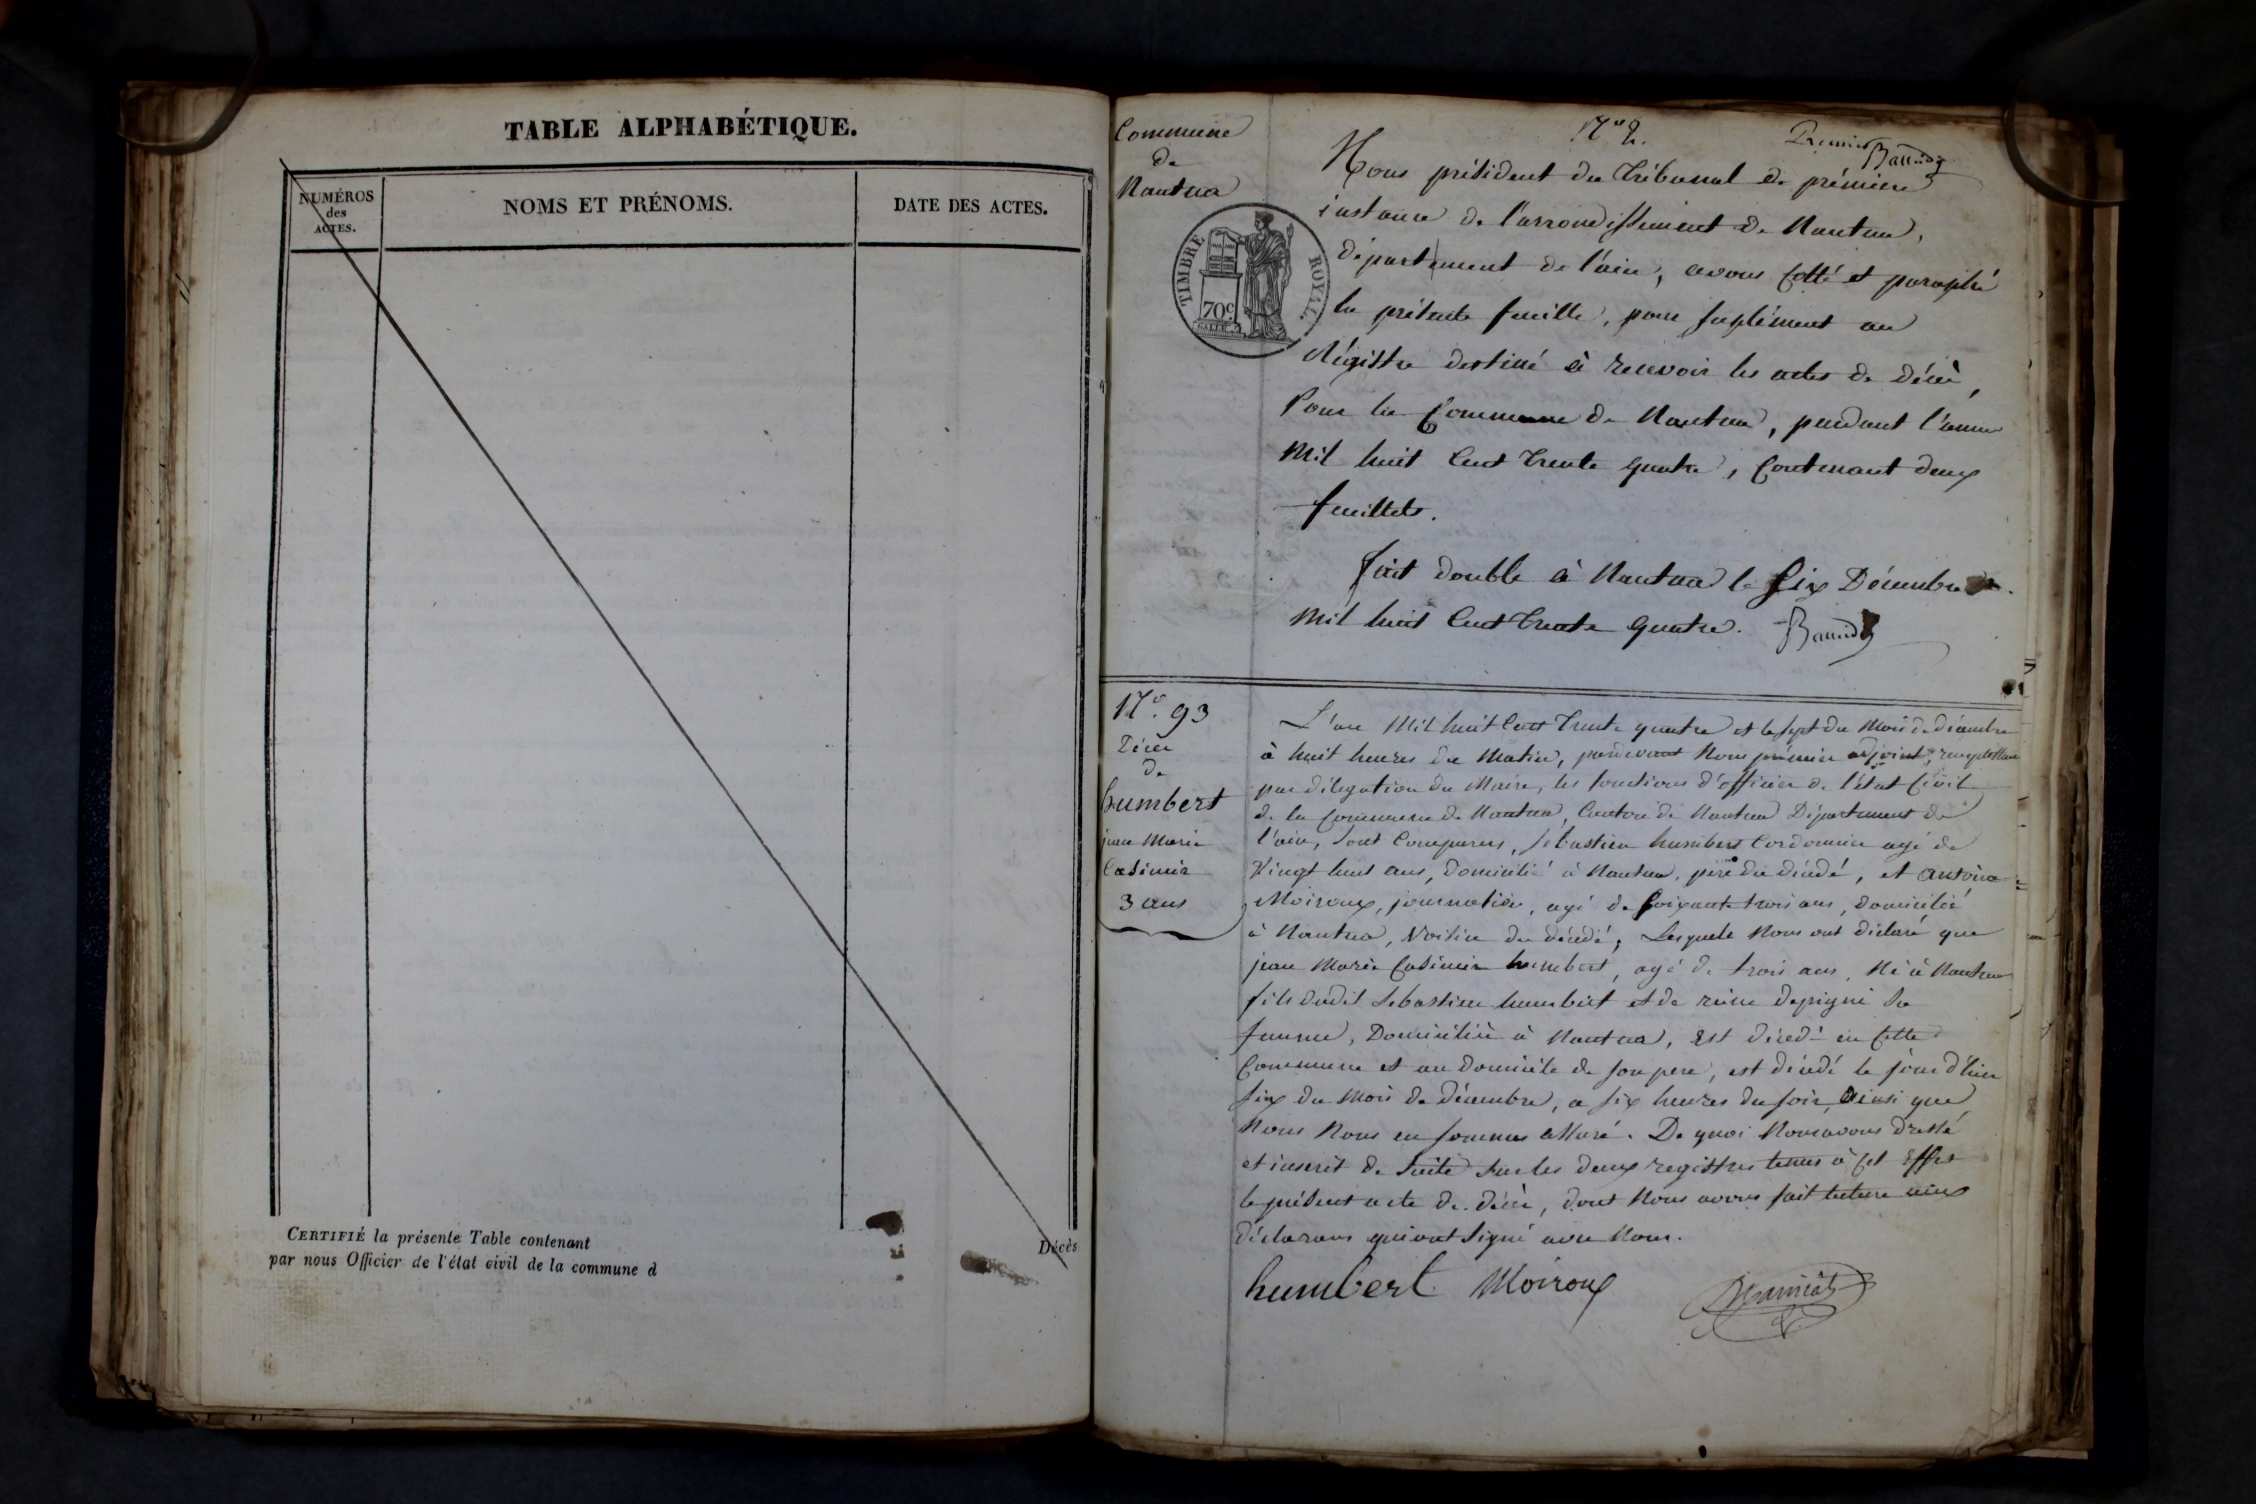 TABLE ALPHABÉTIQUE.
NUMÉROS
des
ACTES.
NOMS ET PRÉNOMS.
DATE DES ACTES.
CERTIFIÉ la présente Table contenant
Décès
par nous Officier de l'état civil de la commune d
Commune
de
Nantua
TIMBRE ROYAL.
70c
N° 2.
Premier
Nous président du Tribunal de prémiere
instance de l'arrondissement de Nantua,
département de l'ain, avons cotté et paraphé
la présente feuille, pour suplément au
Régistre destiné à recevoir les actes de décès,
Pour la Commune de Nantua, pendant l'année
Mil huit Cent Trente quatre, Contenant deux
feuillets.
fait double à Nantua le Six Décembre
Mil huit Cent Trente quatre.
N° 93
Décès
de
humbert
jean Marie
Casimir
3 ans
L'an Mil huit Cent Trente quatre et le sept du Mois de décembre
à huit heures du Matin, pardevant Nous prémier adjoint, remplissant
par délégation du Maire, les fonctions d'officier de l'état Civil
de la Commune de Nantua, Canton de Nantua Département de
l'ain, sont Comparus, Sebastien humbert Cordonnier agé de
Vingt huit ans, Domicilié à Nantua, père du décédé, et antoine
Moiroux, journalier, agé de Soixante trois ans, domicilié
à Nantua, Voisin du décédé, Lesquels Nous ont déclaré que
jean Marie Casimir humbert, agé de trois ans, Né à Nantua
fils dudit Sebastien humbert et de reine sa
femme, Domiciliée à Nantua, est décédé en Cette
Commune et au domicile de son pere, est décédé le jour d'hier
six du Mois de décembre, a six heures du soir, ainsi que
Nous Nous en sommes assuré. De quoi Nous avons dressé
et inscrit de Suite sur les deux registres tenus à cet Effet
le présent acte de décès, dont Nous avons fait lecture aux
déclarans qui ont Signé avec Nous.
humbert Moiroux